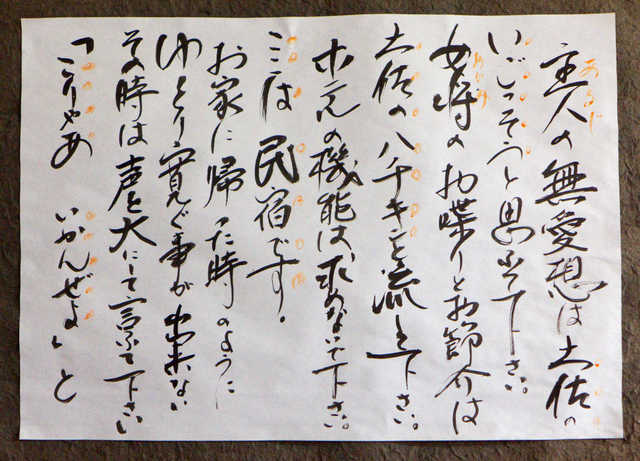 主人の無愛想は土佐の
あるじ
いごっそうと思って下さい。
女将のお喋りとお節介は
おかみ
土佐のハチキンと流して下さい。
ホテルの機能は、求めないで下さい。
ここは 民宿です。
お家に帰った時のように
ゆっくり寛ぐ事が出来ない
その時は声を大にして言って下さい
「こりゃあ いかんぜよ」と